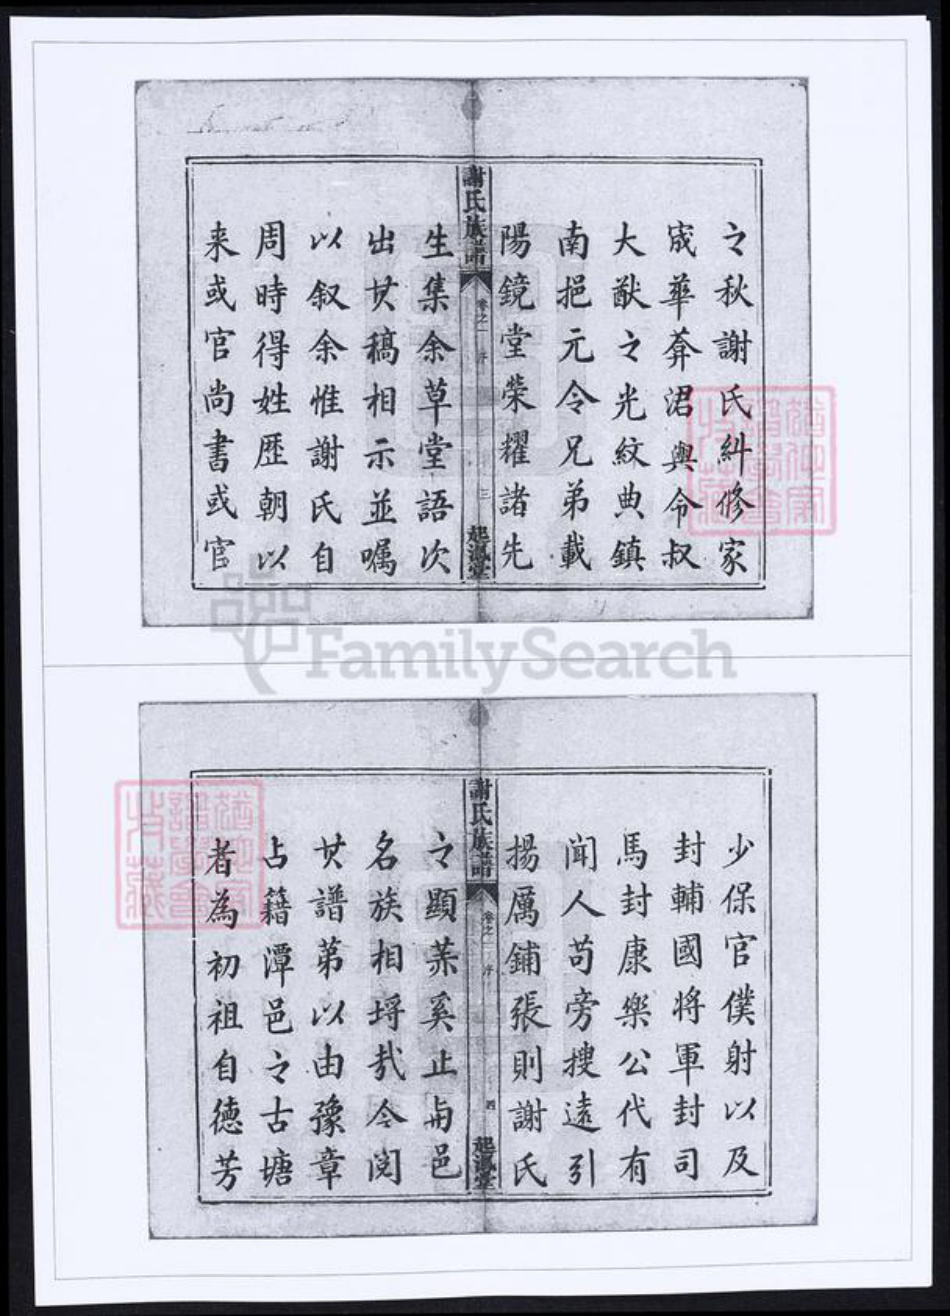 之秋謝氏糾修家
宬華弇涒與令叔
大猷之光紋典鎮
南挹元令兄弟載
陽鏡堂榮耀諸先
謝氏族譜
卷之一 序
三
起鳳堂
生集余草堂語次
出其稿相示並囑
以叙余惟謝氏自
周時得姓歷朝以
来或官尚書或官
少保官僕射以及
封輔國將軍封司
馬封康樂公代有
聞人苟旁搜遠引
揚厲鋪張則謝氏
謝氏族譜
卷之一 序
四
起鳳堂
之顯荣奚止與邑
名族相埒哉今閱
其譜第以由豫章
占籍潭邑之古塘
者為初祖自德芳
FamilySearch